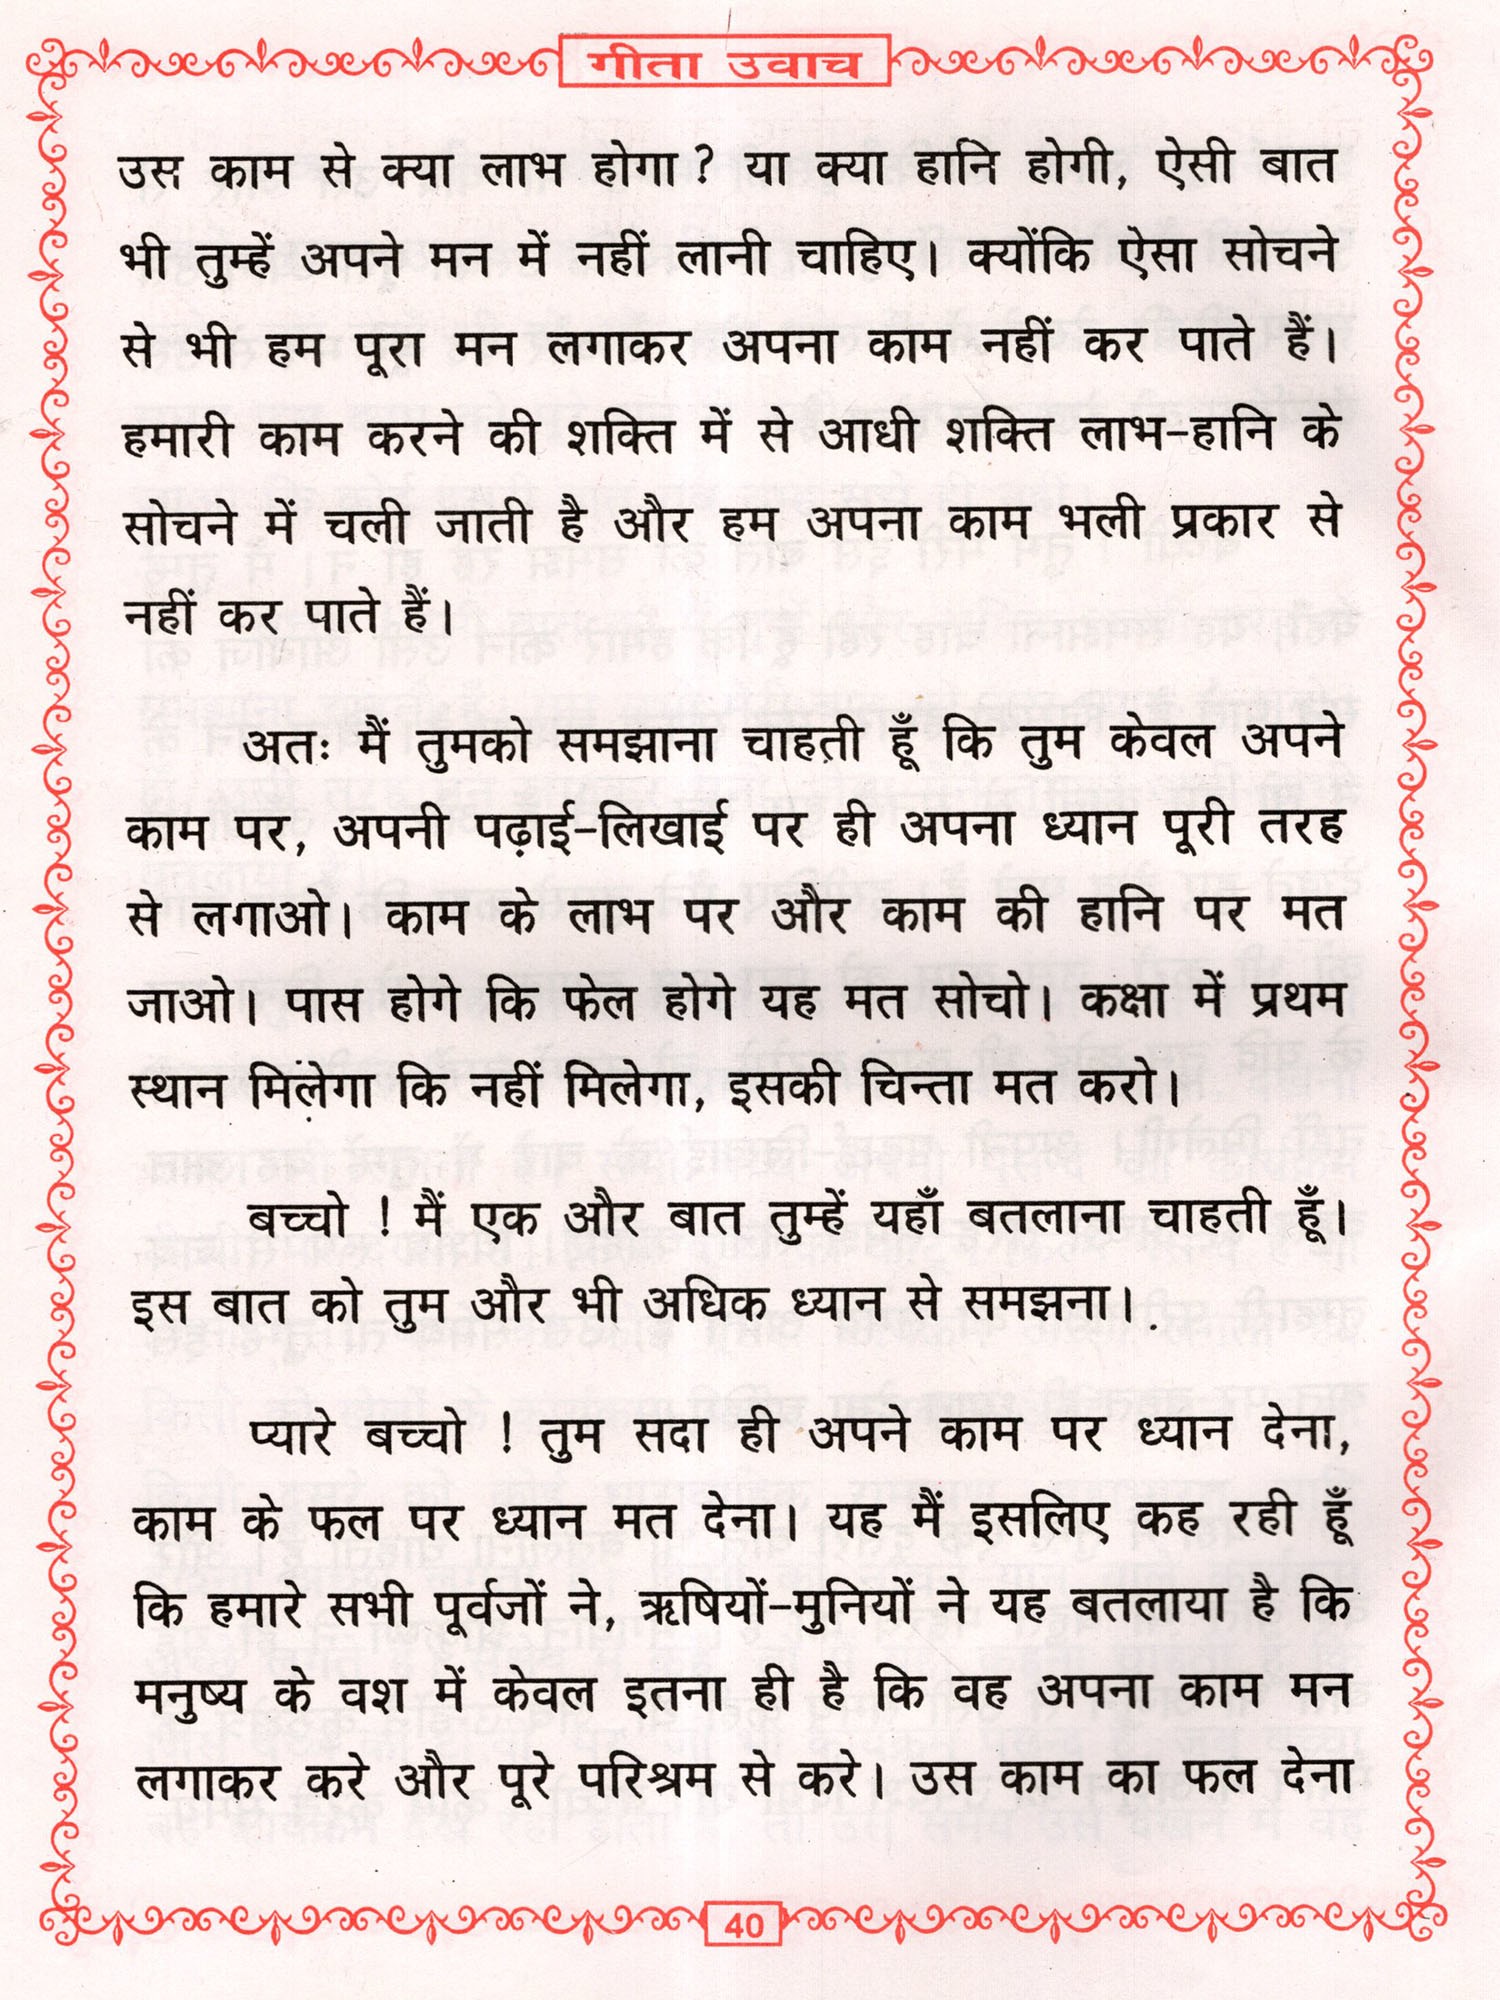 गीता उवाच
उस काम से क्या लाभ होगा? या क्या हानि होगी, ऐसी बात
भी तुम्हें अपने मन में नहीं लानी चाहिए। क्योंकि ऐसा सोचने
से भी हम पूरा मन लगाकर अपना काम नहीं कर पाते हैं।
हमारी काम करने की शक्ति में से आधी शक्ति लाभ-हानि के
सोचने में चली जाती है और हम अपना काम भली प्रकार से
नहीं कर पाते हैं।
अतः मैं तुमको समझाना चाहती हूँ कि तुम केवल अपने
काम पर, अपनी पढ़ाई-लिखाई पर ही अपना ध्यान पूरी तरह
से लगाओ। काम के लाभ पर और काम की हानि पर मत
जाओ। पास होगे कि फेल होगे यह मत सोचो। कक्षा में प्रथम
स्थान मिलेगा कि नहीं मिलेगा, इसकी चिन्ता मत करो।
बच्चो ! मैं एक और बात तुम्हें यहाँ बतलाना चाहती हूँ।
इस बात को तुम और भी अधिक ध्यान से समझना।
प्यारे बच्चो ! तुम सदा ही अपने काम पर ध्यान देना,
काम के फल पर ध्यान मत देना। यह मैं इसलिए कह रही हूँ
कि हमारे सभी पूर्वजों ने, ऋषियों-मुनियों ने यह बतलाया है कि
मनुष्य के वश में केवल इतना ही है कि वह अपना काम मन
लगाकर करे और पूरे परिश्रम से करे। उस काम का फल देना
40